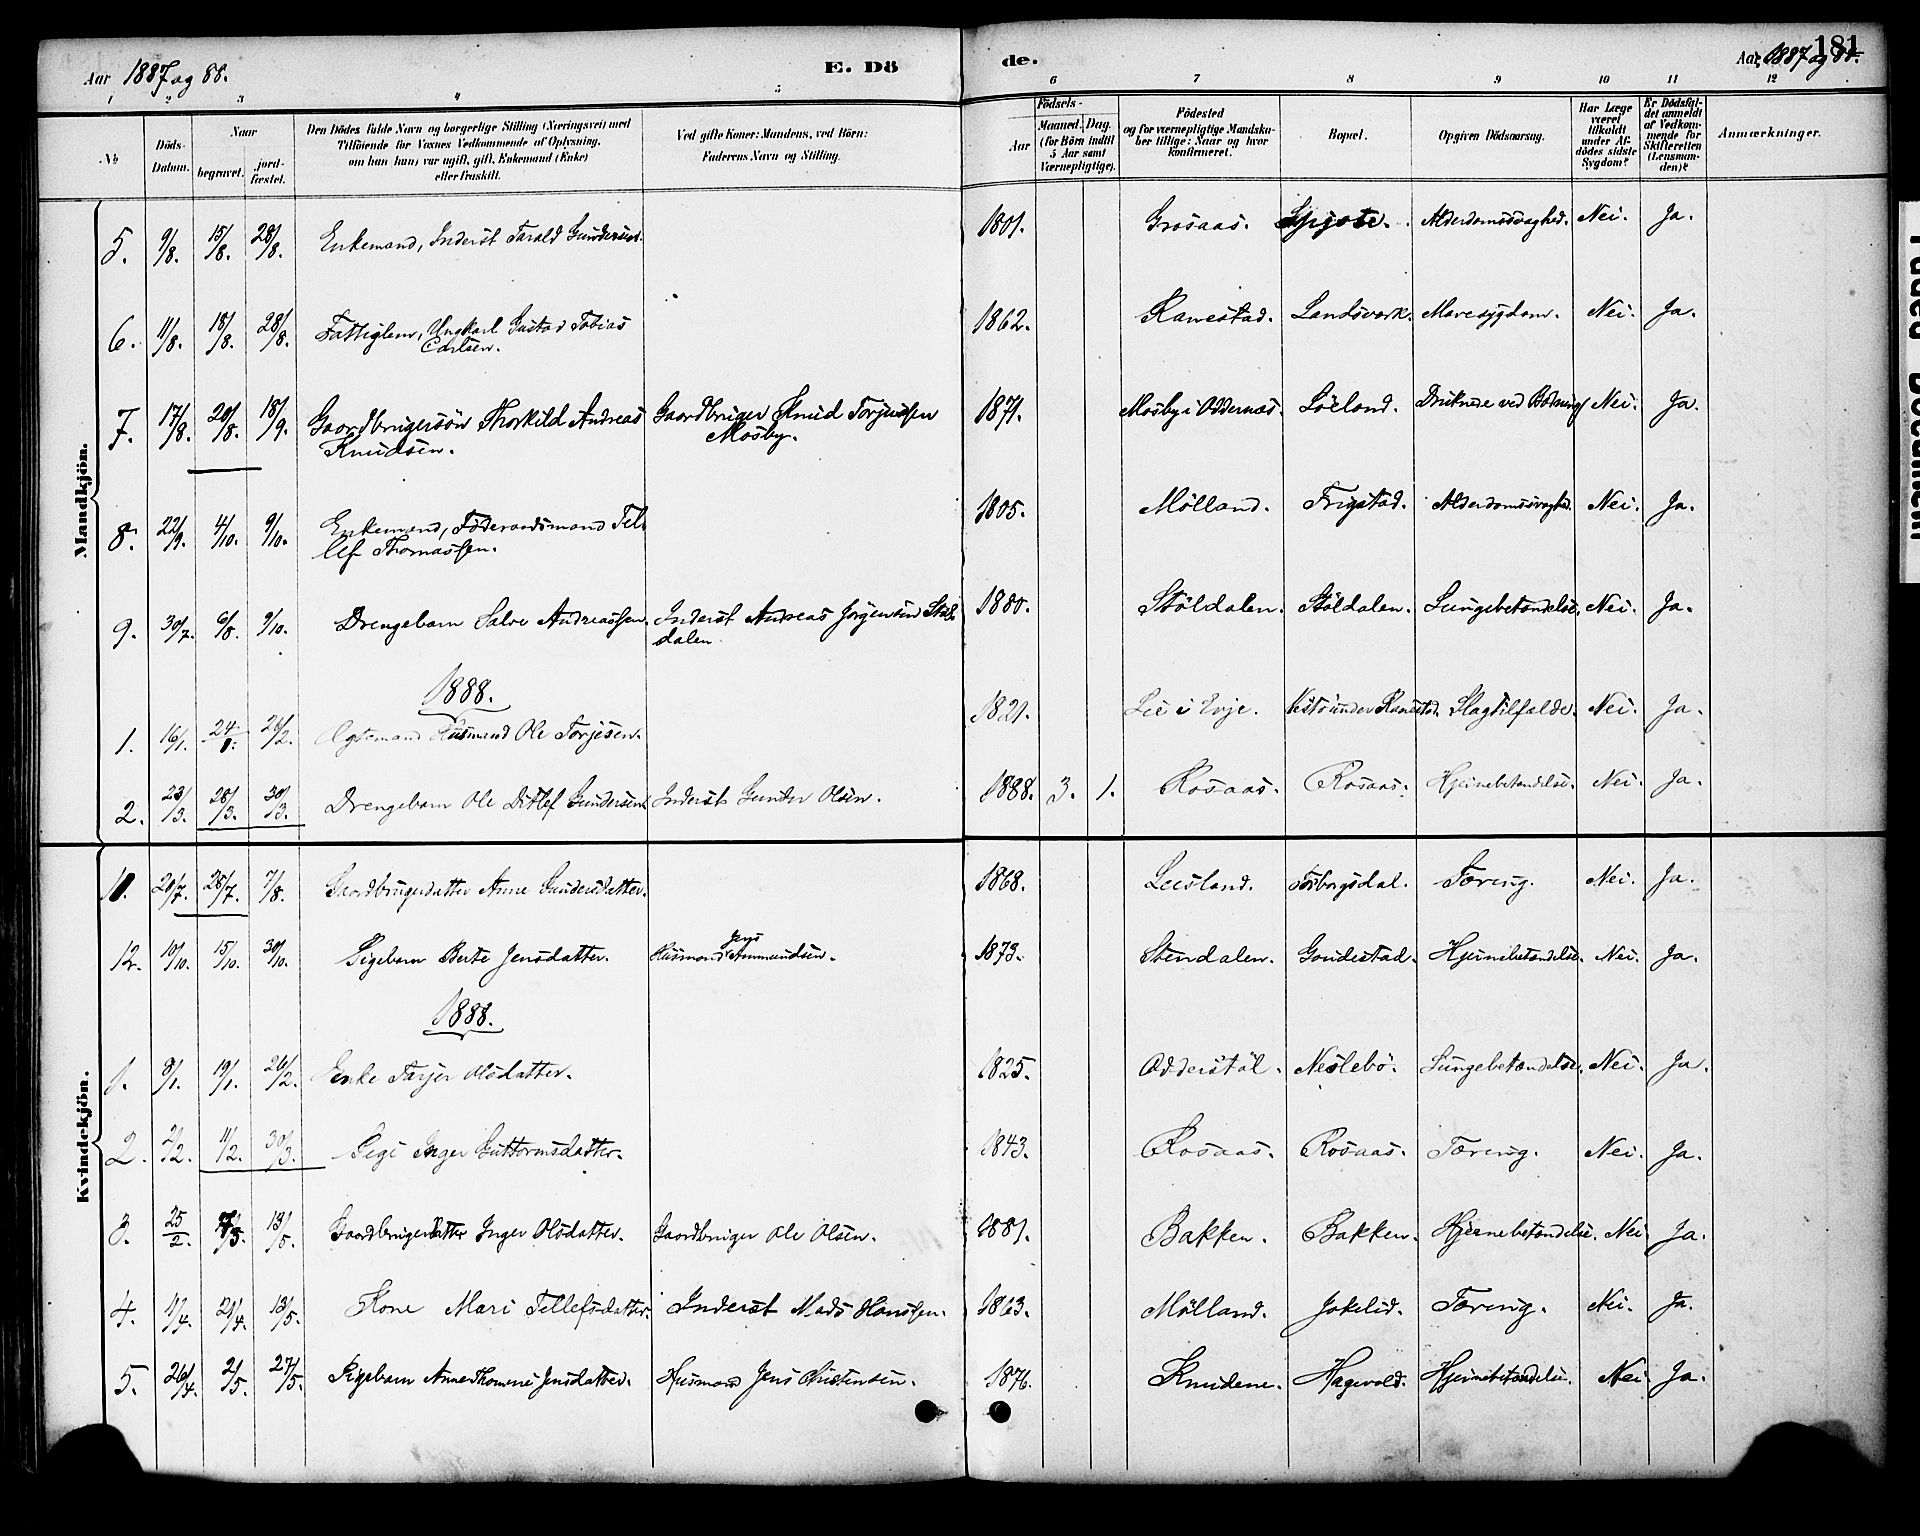 Aar 1887 og 88. E. Dö
de. Aar 1887 og 88. 181
1 2 3 4 5
6 7 8 9 10 11 12
No Döds-Datum. Naar begravet. jord-fæstet. Den Dödes fulde Navn og borgerlige Stilling (Næringsvei) med Tilföiende for Voxnes Vedkommende af Oplysning, om han (hun) var ugift, gift, Enkemand (Enke) eller fraskilt. Ved gifte Koner: Mandens, ved Börn: Faderens Navn og Stilling.
Födsels- Aar Maaned. Dag. (for Börn indtil 5 Aar samt Værnepligtige). Födested og for værnepligtige Mandska-ber tillige: Naar og hvor konfirmeret. Bopæl. Opgiven Dödsaarsag. Har Læge været tilkaldt under Af-dödes sidste Sygdom? Er Dödsfal-det anmeldt af Vedkom-mende for Skifteretten (Lensman-den)? Anmærkninger.
Mandkjön.
5. 9/8. 15/8. 28/8. Enkemand, Inderst Tarald Gundersen. 1801. Grosaas. Alderdomssvaghed. Nei. Ja.
6. 11/8. 18/8. 28/8. Fattiglem, Ungkarl Gustad Tobias
Carlsen. 1862. Ranestad. Landsverk. Mavesygdom. Nei. Ja.
7. 17/8. 20/8. 18/9. Gaardbrugersön Thorkild Andreas
Knudsen. Gaardbruger Knud Torjussen
Mosby. 1871. Mosby i Oddernæs. Löeland. Druknede ved Badning Nei. Ja.
8. 22/9. 4/10. 9/10. Enkemand, Föderaadsmand Tel
lef Thomassen. 1805. Mölland. Frigstad. Alderdomssvaghed. Nei. Ja.
9. 30/7. 6/8. 9/10. Drengebarn Salve Andreassen. Inderst Andreas Jörgensen Stöl
dalen. 1880. Stöldalen. Stöldalen. Lungebetændelse. Nei. Ja.
1888.
1. 16/1. 24/1. 26/2. Ægtemand Husmand Ole Torjesen. 1821. Lie i Evje. under Ranestad. Slagtilfælde. Nei. Ja.
2. 23/3. 28/3. 30/3. Drengebarn Ole Ditlef Gundersen. Inderst Gunder Olsen. 1888. 3. 1. Rosaas. Rosaas. Hjernebetændelse. Nei. Ja.
Kvindekjön.
20/7. 28/7. 7/8. Gaardbrugerdatter Anne Gundersdatter. 1868. Leisland. Torborgsdal. Tæring. Nei. Ja.
12. 10/10. 15/10. 30/10. Pigebarn Berte Jensdatter. Husmand Jens Ammundsen. 1873. Stendalen. Goudestad. Hjernebetændelse. Nei. Ja.
1888.
1. 8/1. 19/1. 26/2. Enke Tarjer Olsdatter. 1825. Odderstöl. Neslebö. Lungebetændelse. Nei. Ja.
2. 2/2. 11/2. 30/3. Pige Inger Guttormsdatter. 1843. Rosaas. Rosaas. Tæring. Nei. Ja.
3. 25/2. 13/5. Gaardbrugerdatter Inger Olsdatter. Gaardbruger Ole Olsen. 1881. Bakken. Bakken. Hjernebetændelse. Nei Ja.
4. 11/4. 21/4. 13/5. Kone Mari Tellefsdatter. Inderst Mads Hanssen. 1863. Mölland. Jokelid. Tæring. Nei. Ja.
5. 26/4. 2/5. 27/5. Pigebarn Anne Thomine Jensdatter. Husmand Jens Christensen. 1876. Knudene. Hagevold. Hjernebetændelse. Nei Ja.